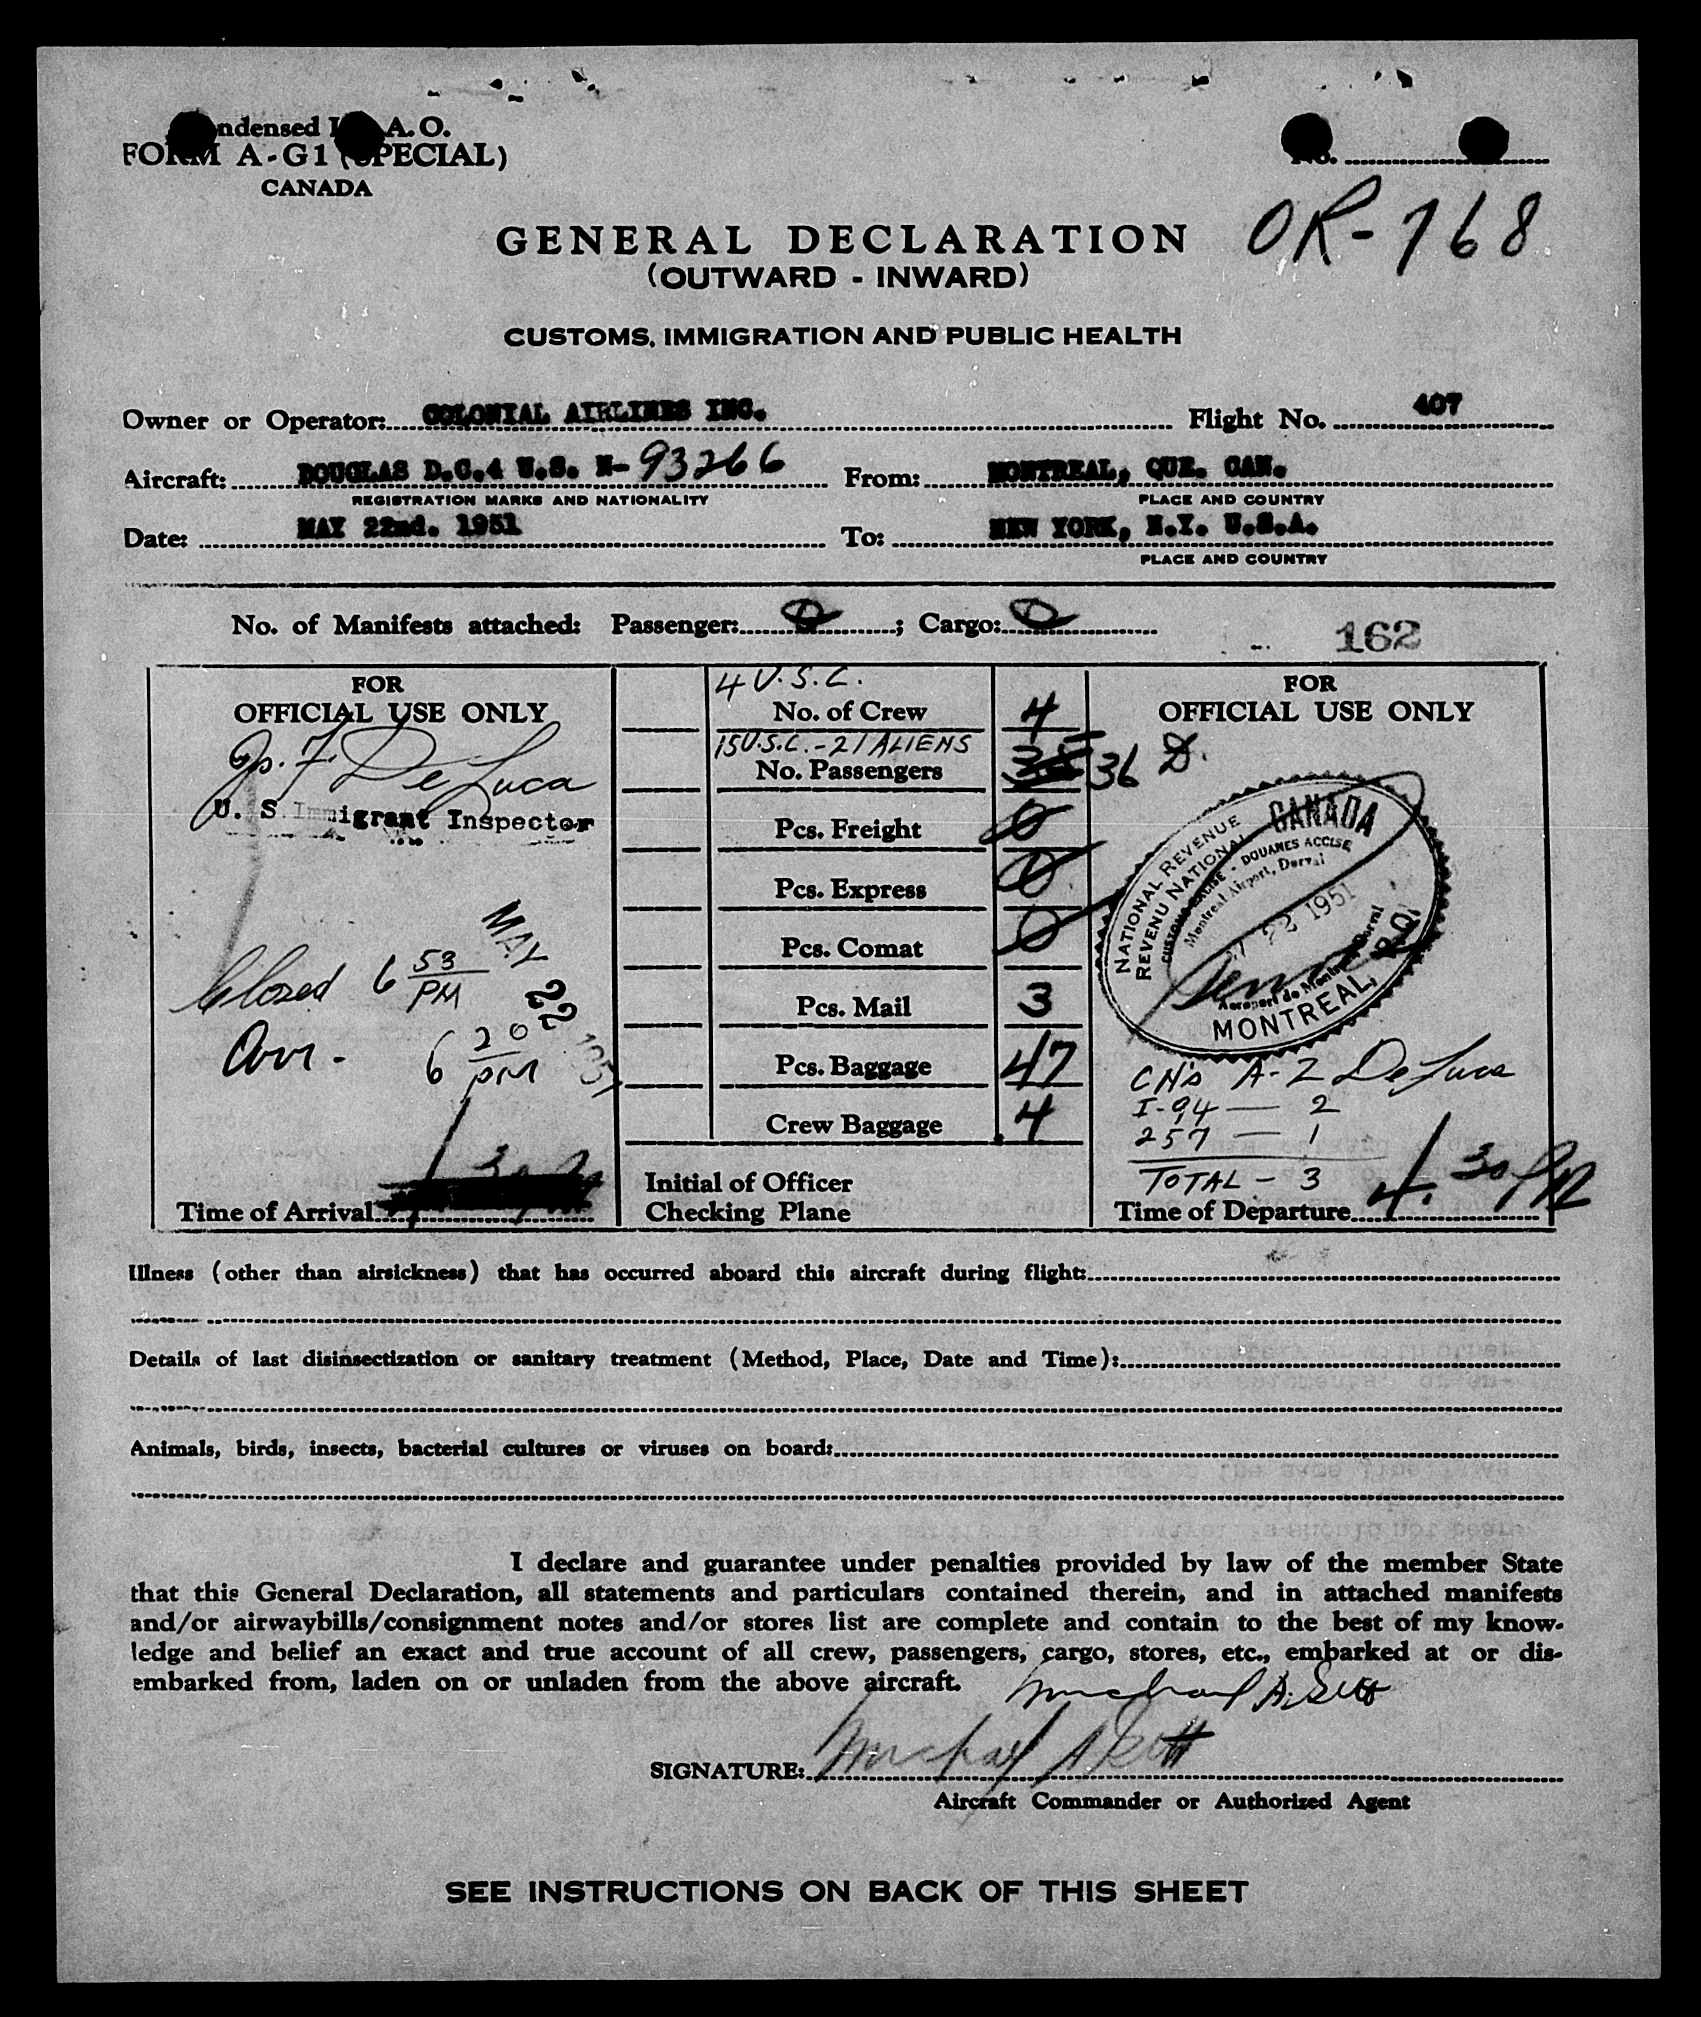 Condensed I.C.A.O.
FORM A-G1 (SPECIAL)
CANADA
No.
OR-768
GENERAL DECLARATION
(OUTWARD - INWARD)
CUSTOMS, IMMIGRATION AND PUBLIC HEALTH
Owner or Operator: COLONIAL AIRLINES INC. Flight No. 407
Aircraft: DOUGLAS D.C.4 U.S. N-93266 From: MONTREAL, QUE. CAN.
REGISTRATION MARKS AND NATIONALITY PLACE AND COUNTRY
Date: MAY 22nd. 1951 To: NEW YORK, N.Y. U.S.A.
PLACE AND COUNTRY
No. of Manifests attached: Passenger: 0; Cargo: 0
162
FOR
OFFICIAL USE ONLY
Jos. F. De Luca
U. S. Immigrant Inspector
MAY 22 1951
Closed 6 53 PM
Arr. - 6 20 PM
Time of Arrival
4 U.S.C.
No. of Crew 4
15 U.S.C. - 21 ALIENS
No. Passengers 35 36 D.
Pcs. Freight 0
Pcs. Express 0
Pcs. Comat 0
Pcs. Mail 3
Pcs. Baggage 47
Crew Baggage 4
Initial of Officer
Checking Plane
FOR
OFFICIAL USE ONLY
CANADA
NATIONAL REVENUE
REVENU NATIONAL
CUSTOMS EXCISE - DOUANES ACCISE
Montreal Airport, Dorval
22 1951
Aeroport de Montreal, Dorval
MONTREAL, P.Q.
CH's A-2 De Luca
I-94 — 2
257 — 1
TOTAL - 3
Time of Departure 4.30 PM
Illness (other than airsickness) that has occurred aboard this aircraft during flight:
Details of last disinsectization or sanitary treatment (Method, Place, Date and Time):
Animals, birds, insects, bacterial cultures or viruses on board:
I declare and guarantee under penalties provided by law of the member State
that this General Declaration, all statements and particulars contained therein, and in attached manifests
and/or airwaybills/consignment notes and/or stores list are complete and contain to the best of my know-
ledge and belief an exact and true account of all crew, passengers, cargo, stores, etc., embarked at or dis-
embarked from, laden on or unladen from the above aircraft.
Michael A.
SIGNATURE: Michael A
Aircraft Commander or Authorized Agent
SEE INSTRUCTIONS ON BACK OF THIS SHEET